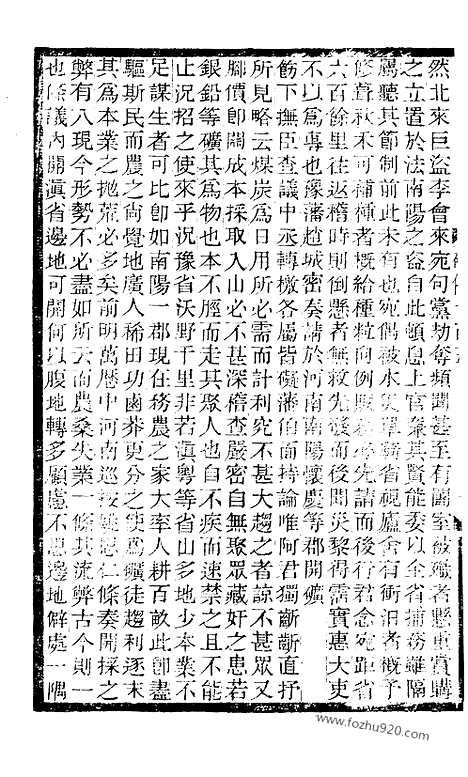 然北來巨盜李會來宛句黨劫奪頻聞甚至有闔室被殲者懸重賞購
之立置於法南陽之盜自此頓息上官廉其賢能委以全省捕務雖隔
屬聽其節制前此未有也宛偶被水災單騎省視廬舍有衝汩者概予
修葺秋禾可補種者概給種粒向例賑必先請而後行君念宛距省
六百餘里往返稽時則倒懸者無救先後而後聞災黎得需實惠大吏
不以為專也豫藩趙城密奏請於河南南陽懷慶等郡開礦
飭下撫臣查議中丞轉檄各屬皆礙藩伯而持論唯阿君獨斷斷直抒
所見略云煤炭為日用所必需而計利究不甚大趨之者諒不甚眾又
腳價即鬭成本採取入山必不甚深稽查嚴密自無聚眾藏奸之患若
銀鉛等礦其為物也不脛而走其聚人也自不疾而速禁之且不能
止況招之使來乎況豫省沃野千里非若滇粵等省山多地少本業不
足謀生者可比即如南陽一郡現在務農之家大率人耕百畝此即盡
驅斯民而農之尚覺地廣人稀田功鹵莽更分之使為礦徒趨利逐末
其為本業之拋荒必多矣前明萬曆中河南巡按姚思仁條奏開採之
弊有八現今形勢不必盡如所云而農桑失業一條其流弊古今則一
也條議內開滇省邊地可開何以腹地轉多顧慮不思邊地僻處一隅
www.fozhu920.com